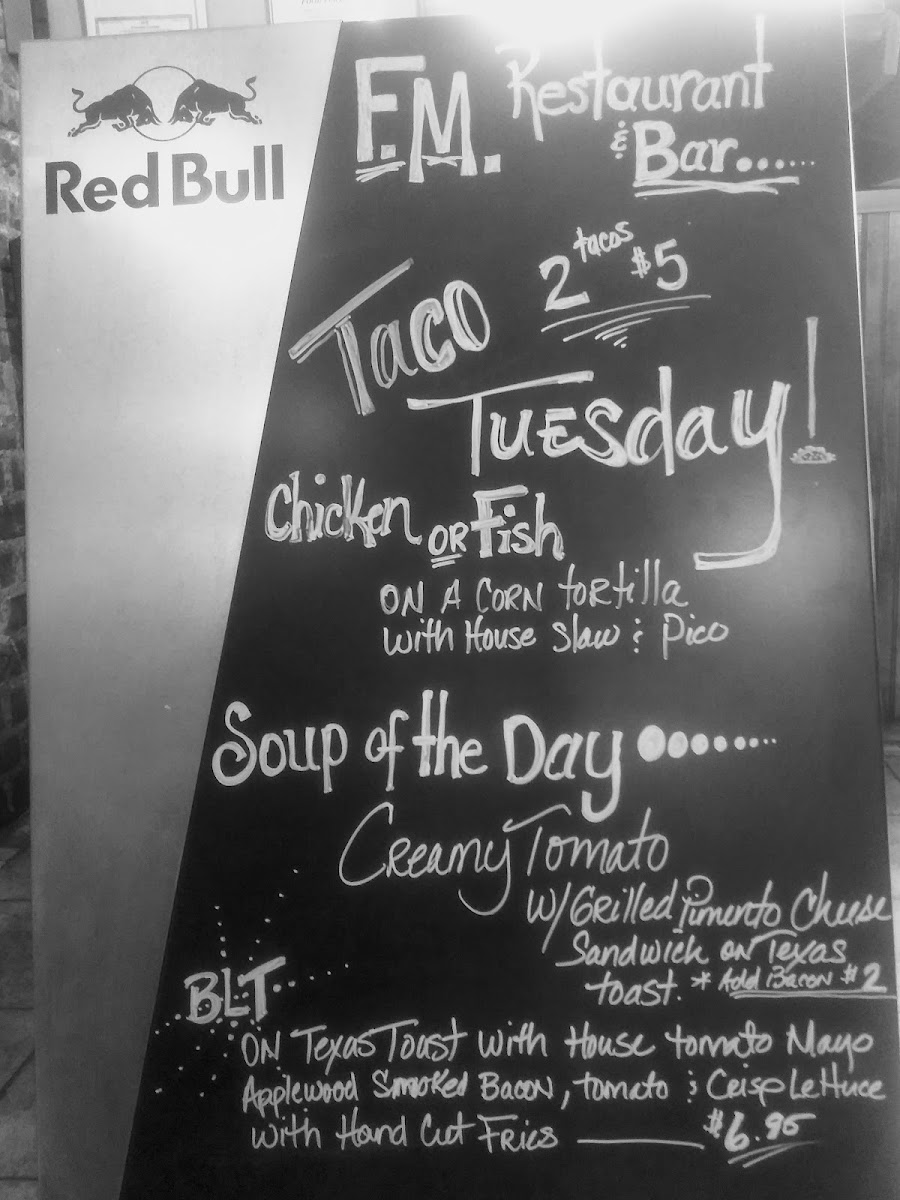 Red Bull
F.M. Restaurant
& Bar......
2 tacos $5
Taco
Tuesday!
Chicken or Fish
ON A CORN tortilla
with House Slaw & Pico
Soup of the Day ........
Creamy Tomato
W/ Grilled Pimento Cheese
Sandwich on Texas
toast. * Add Bacon $2
BLT
ON Texas Toast with House tomato Mayo
Applewood Smoked Bacon, tomato & Crisp Lettuce
with Hand Cut Fries — $6.95